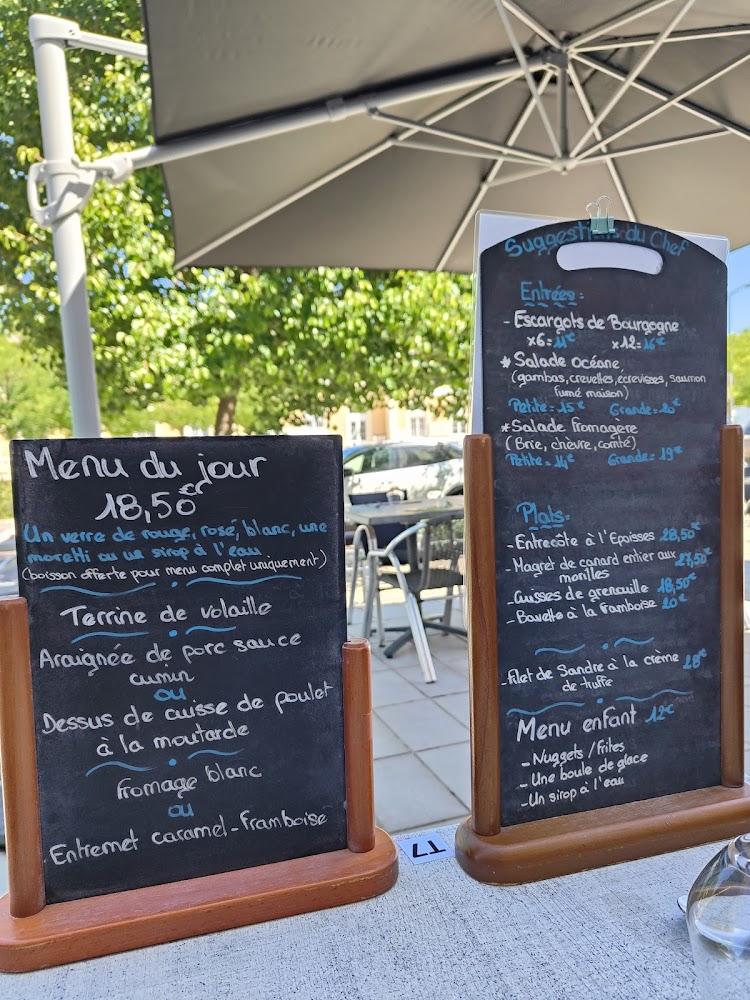 Menu du jour
18,50€
Un verre de rouge, rosé, blanc, une
moretti ou un sirop à l'eau
(boisson offerte pour menu complet uniquement)
Terrine de volaille
Araignée de porc sauce
cumin
ou
Dessus de cuisse de poulet
à la moutarde
fromage blanc
ou
Entremet caramel-framboise
Suggestions du Chef
Entrées:
- Escargots de Bourgogne
x6= 11€ x12= 16€
* Salade océane
(gambas, crevettes, écrevisses, saumon
fumé maison)
Petite = 15€ Grande = 20€
* Salade fromagère
(Brie, chèvre, comté)
Petite = 14€ Grande = 19€
Plats:
- Entrecôte à l'Epoisses 28,50€
- Magret de canard entier aux 27,50€
morilles
- Cuisses de grenouille 18,50€
- Bavette à la framboise 20€
- Filet de Sandre à la crème 28€
de truffe
Menu enfant 12€
- Nuggets / frites
- Une boule de glace
- Un sirop à l'eau